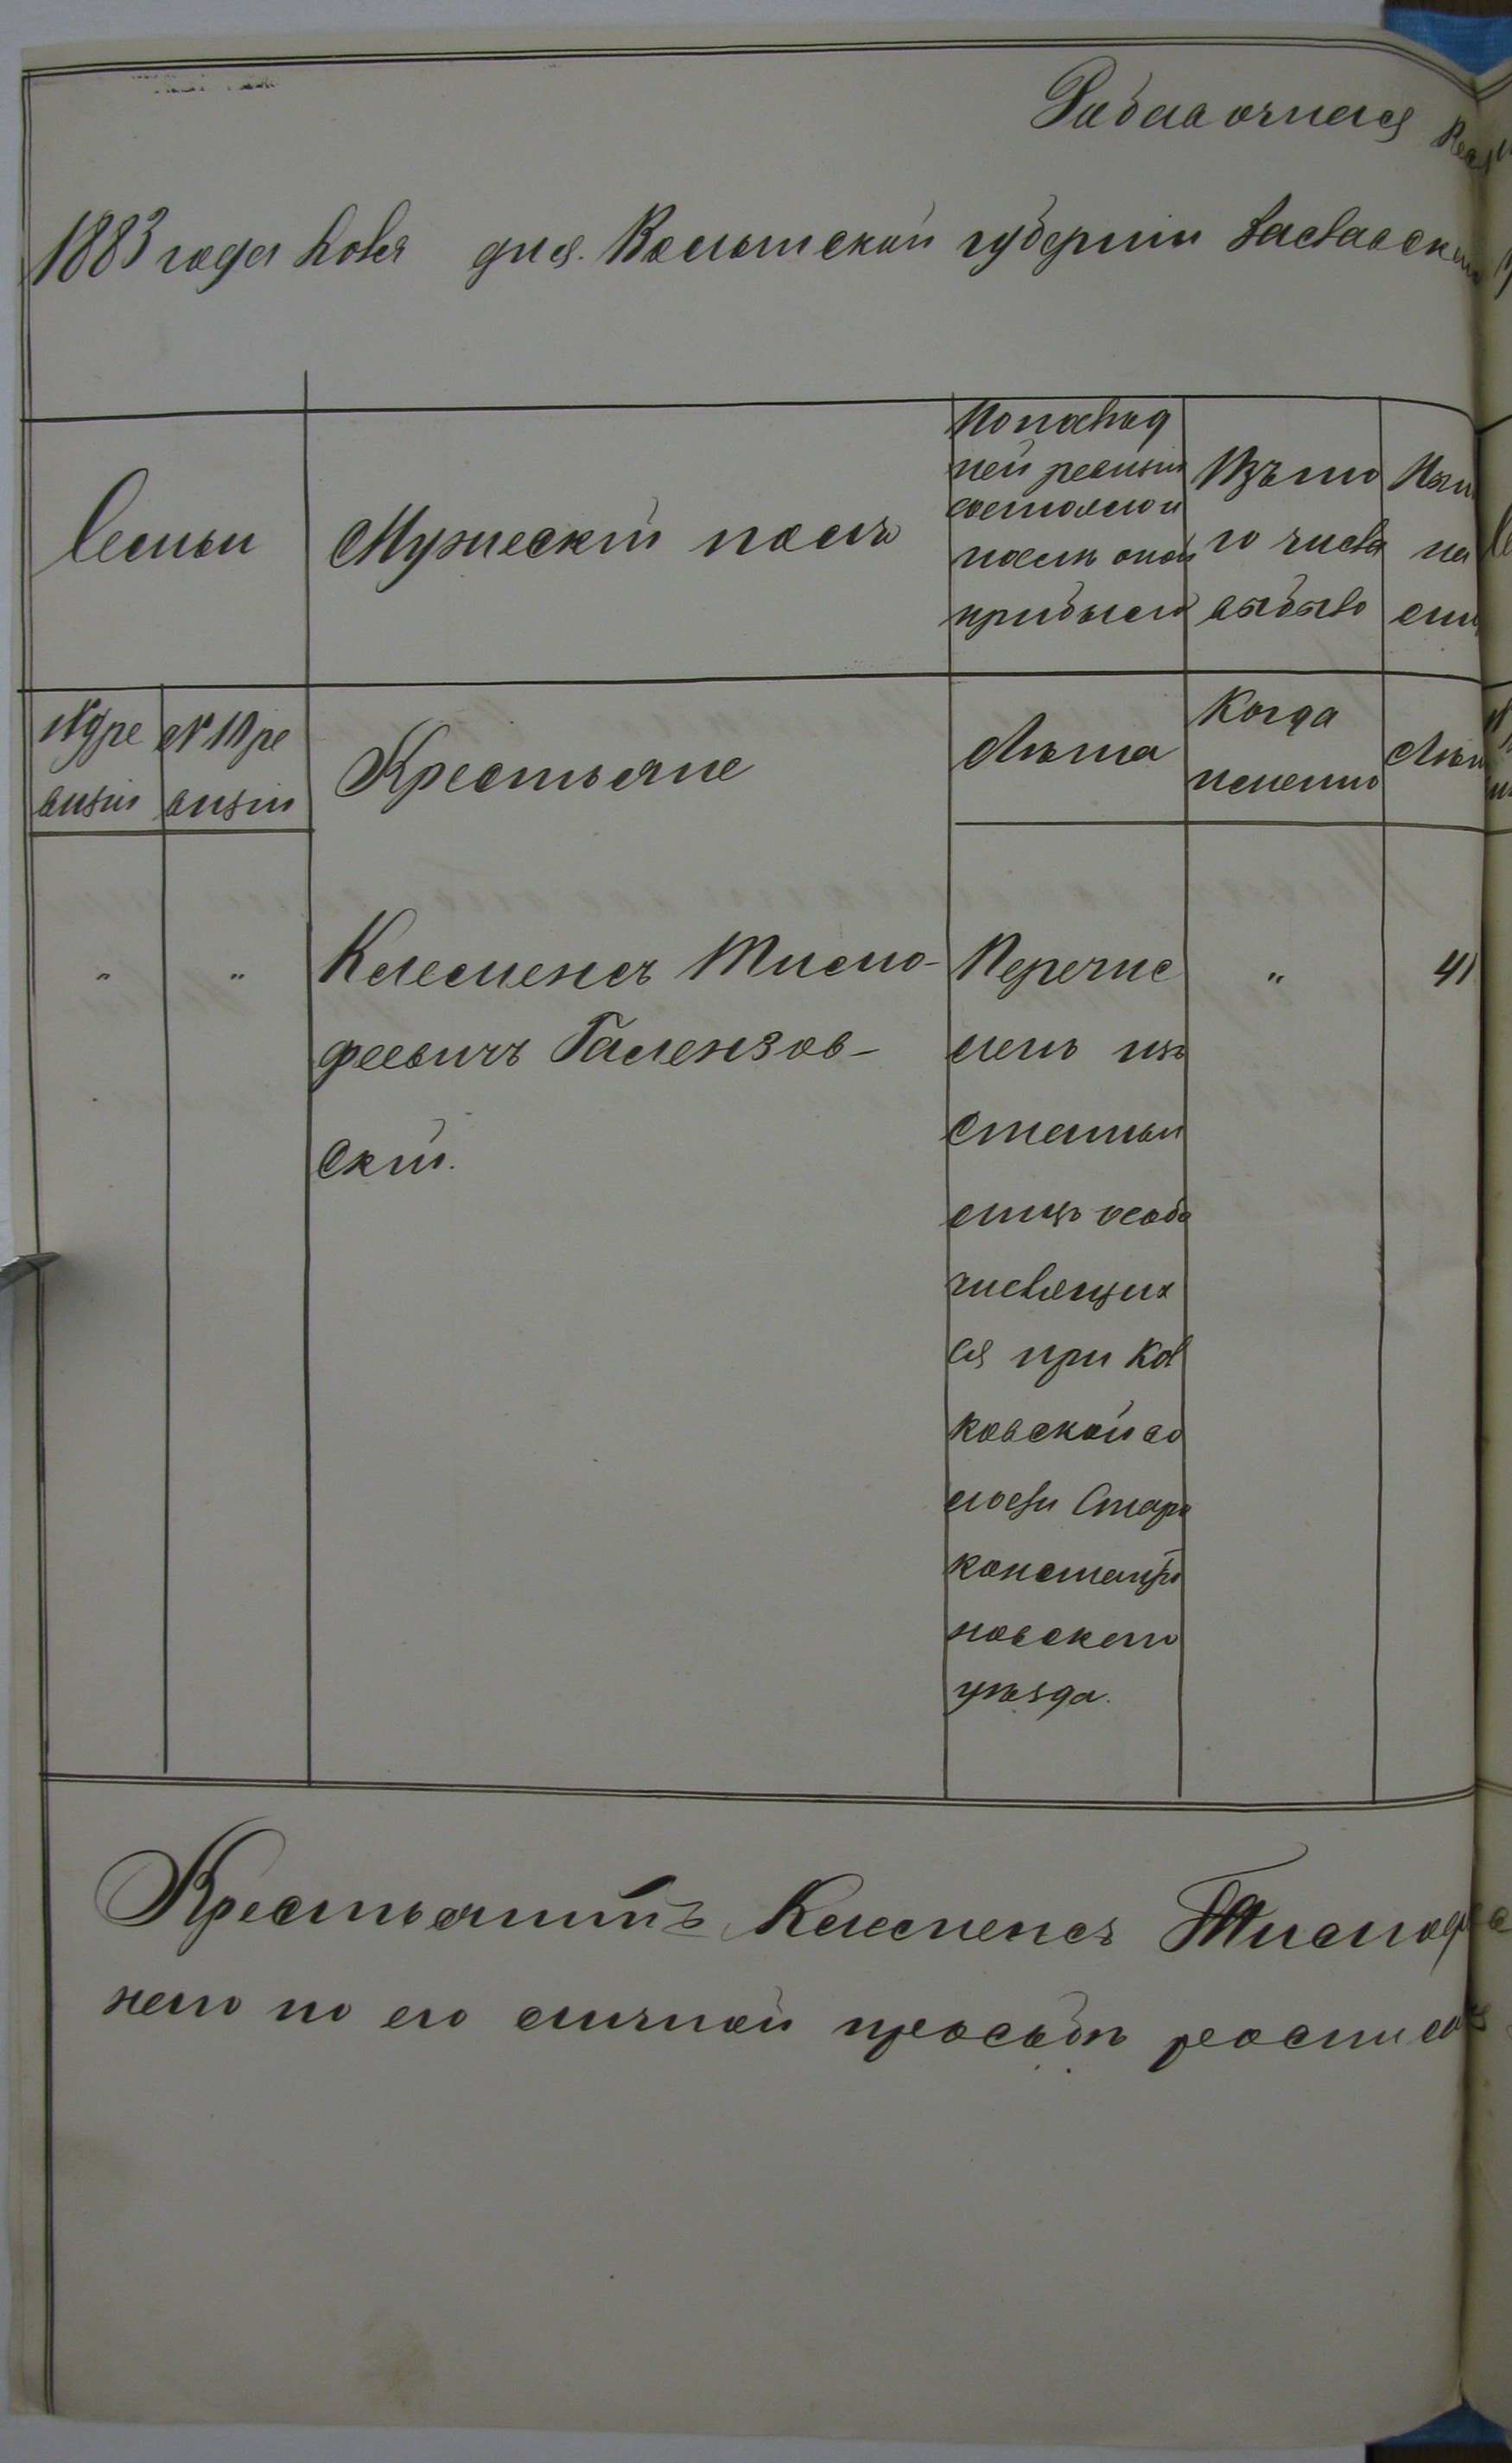 Рабааочная
1883 года Ноля дня. Волынской губернии Заславск
Семьи
Мужескій полъ
Попослѣд
ней ревизіи
состояло и
послѣ оной
прибыло
Изъ то
го числа
выбыло
Нын
на
лиц
№ 9 ре
визіи
№ 10 ре
визіи
Крестьяне
Лѣта
Когда
именно
Лѣт
"
"
Клеменсъ Тимо-
феевичъ Галензов-
скій.
Перечис
ленъ изъ
Статьи
лицъ особо
числящих
ся при Кол
ковской во
лости Старо
константи
новскаго
уѣзда.
"
41
Крестьянинъ Клеменсъ Тимоф
него по его личной просьбѣ роспис